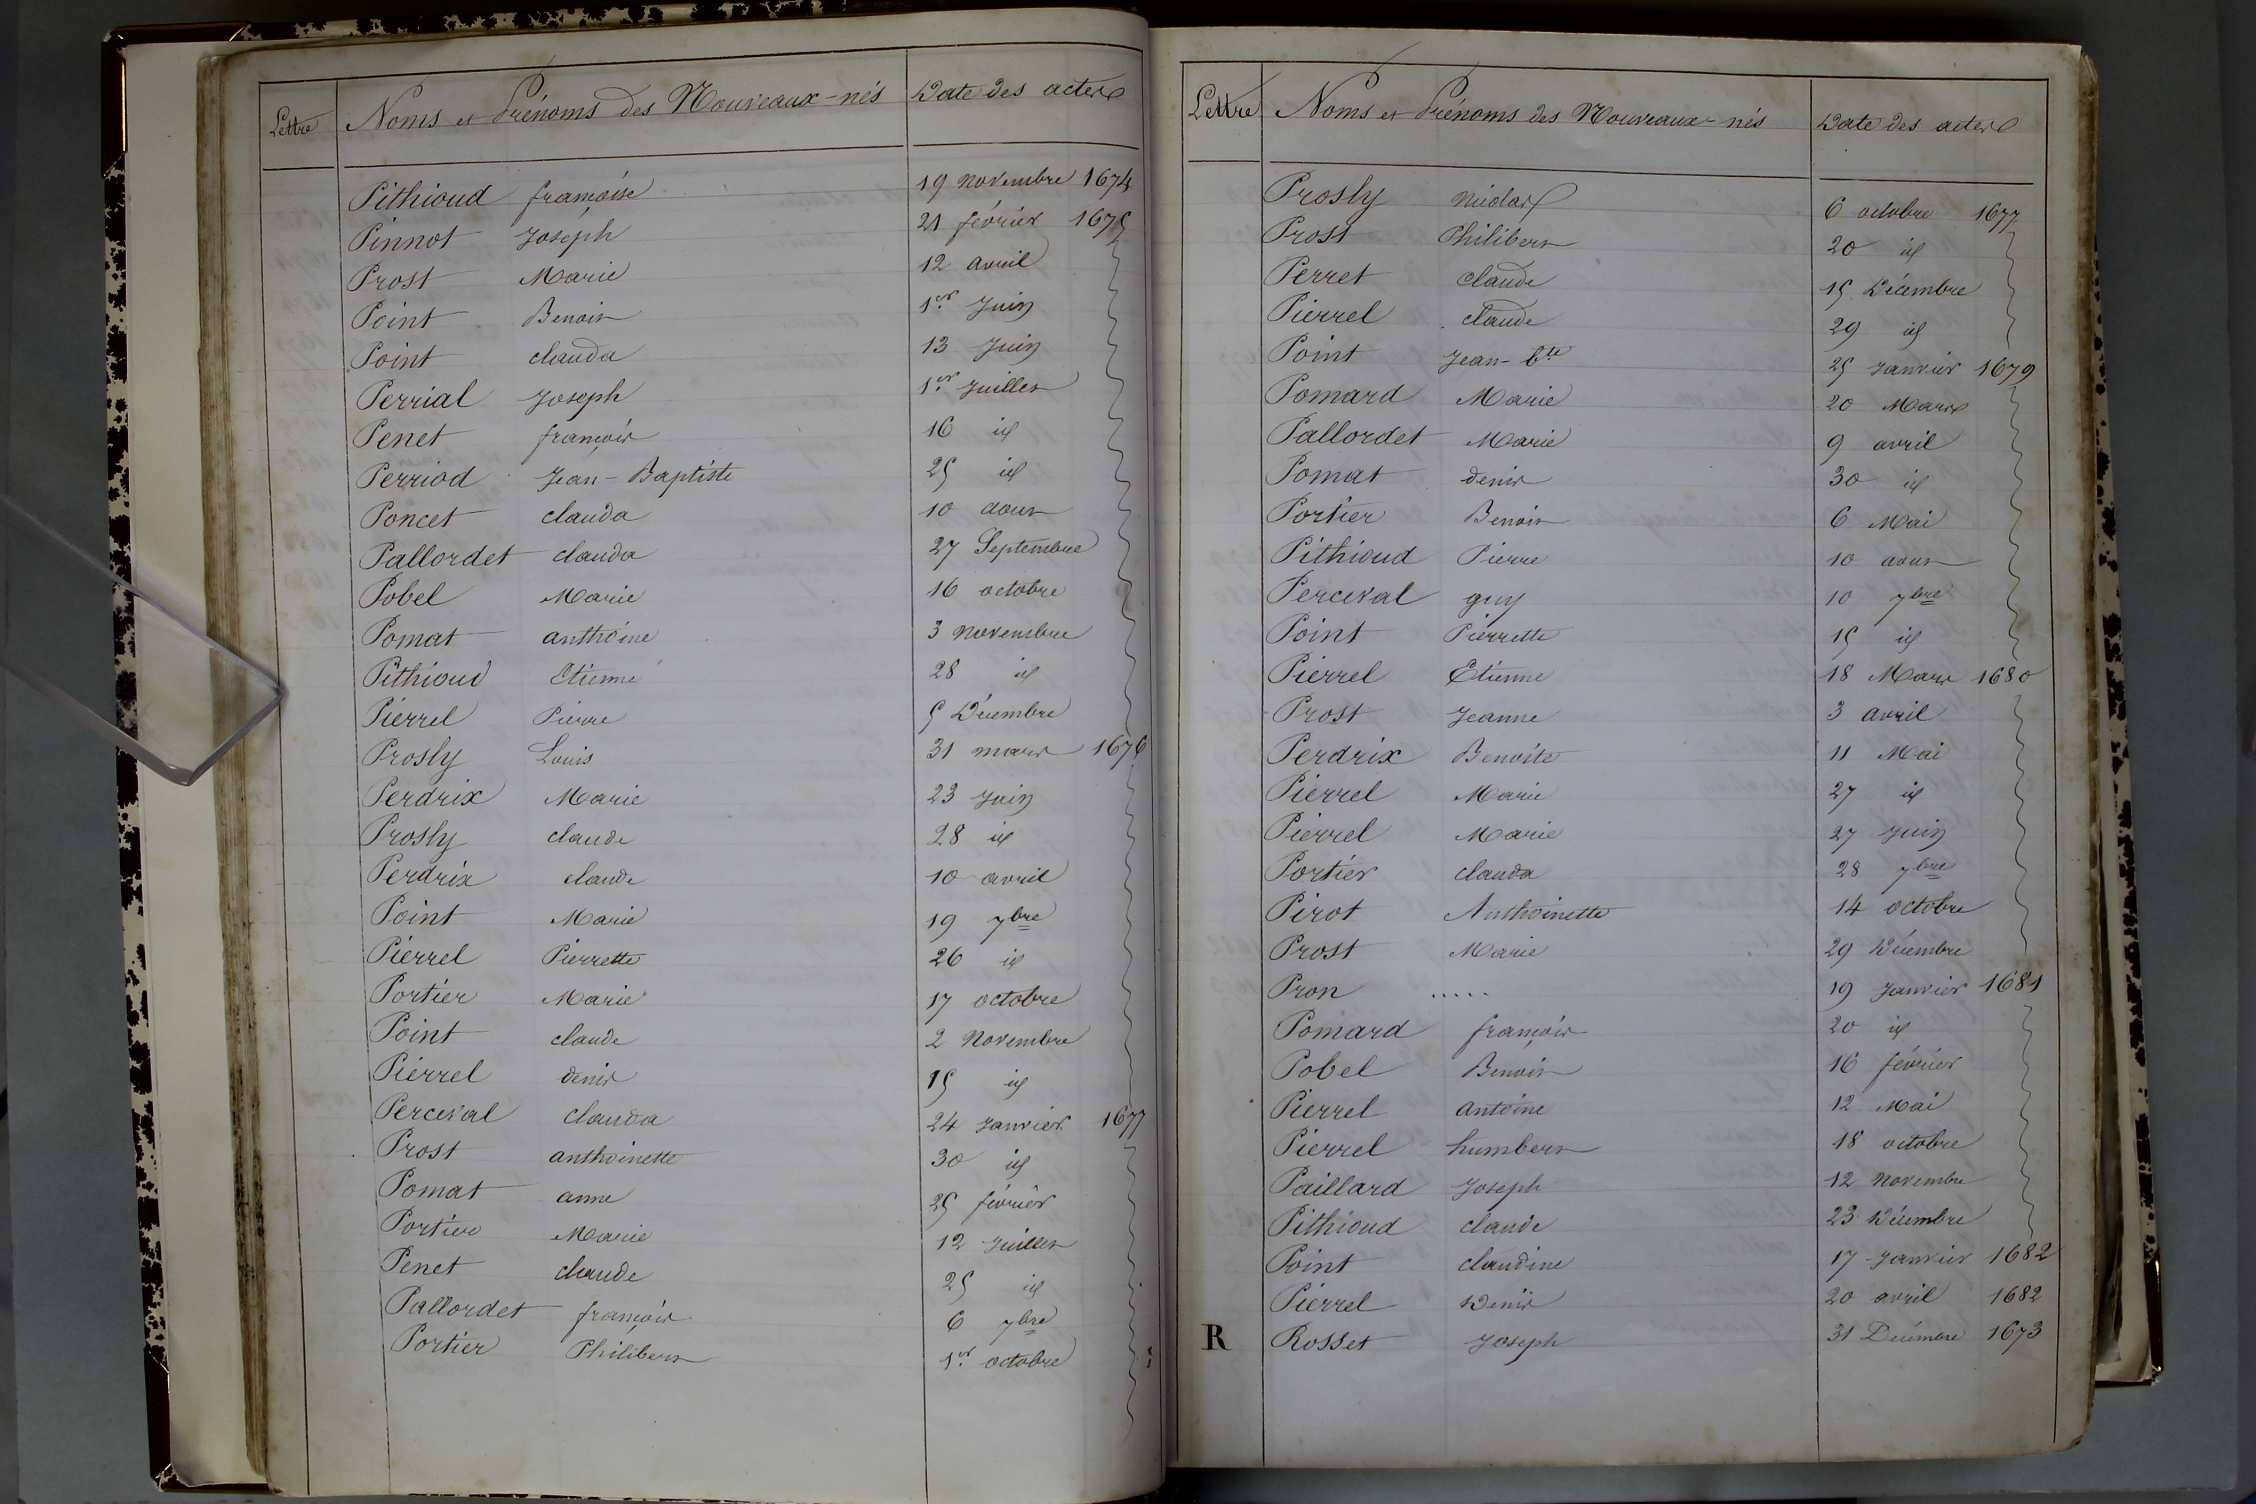 Lettre Noms et Prénoms des Nouveaux-nés Date des actes
Pithioud françoise 19 novembre 1674
Pinnot Joseph 21 février 1675
Prost Marie 12 avril
Point Benoit 1er Juin
Point clauda 13 Juin
Perrial Joseph 1er Juillet
Penet françois 16 id
Perriod Jean-Baptiste 25 id
Poncet clauda 10 aout
Pallordet clauda 27 Septembre
Pobel Marie 16 octobre
Pomat anthoine 3 novembre
Pithioud Etienne 28 id
Pierrel Pierre 5 Décembre
Prosly Louis 31 mars 1676
Perdrix Marie 23 Juin
Prosly claude 28 id
Perdrix claude 10 avril
Point Marie 19 7bre
Pierrel Pierrette 26 id
Portier Marie 17 octobre
Point claude 2 Novembre
Pierrel denis 15 id
Perceval clauda 24 Janvier 1677
Prost anthoinette 30 id
Pomat anne 25 février
Portier Marie 12 Juillet
Penet claude 25 id
Pallordet françois 6 7bre
Portier Philibert 1er octobre
Lettre Noms et Prénoms des Nouveaux-nés Date des actes
Prosly nicolas 6 octobre 1677
Prost Philibert 20 id
Perret claude 15 Décembre
Pierrel claude 29 id
Point Jean-bte 25 Janvier 1679
Pomard Marie 20 Mars
Pallordet Marie 9 avril
Pomat denis 30 id
Portier Benoit 6 Mai
Pithioud Pierre 10 aout
Perceval guy 10 7bre
Point Pierrette 15 id
Pierrel Etienne 18 Mars 1680
Prost Jeanne 3 avril
Perdrix Benoite 11 Mai
Pierrel Marie 27 id
Pierrel Marie 27 Juin
Portier clauda 28 7bre
Pirot Anthoinette 14 octobre
Prost Marie 29 Décembre
Pron ..... 19 Janvier 1681
Pomard françois 20 id
Pobel Benoit 16 février
Pierrel antoine 12 Mai
Pierrel humbert 18 octobre
Paillard Joseph 12 Novembre
Pithioud claude 23 Décembre
Point claudine 17 Janvier 1682
Pierrel Denis 20 avril 1682
R Rosset Joseph 31 Décembre 1673